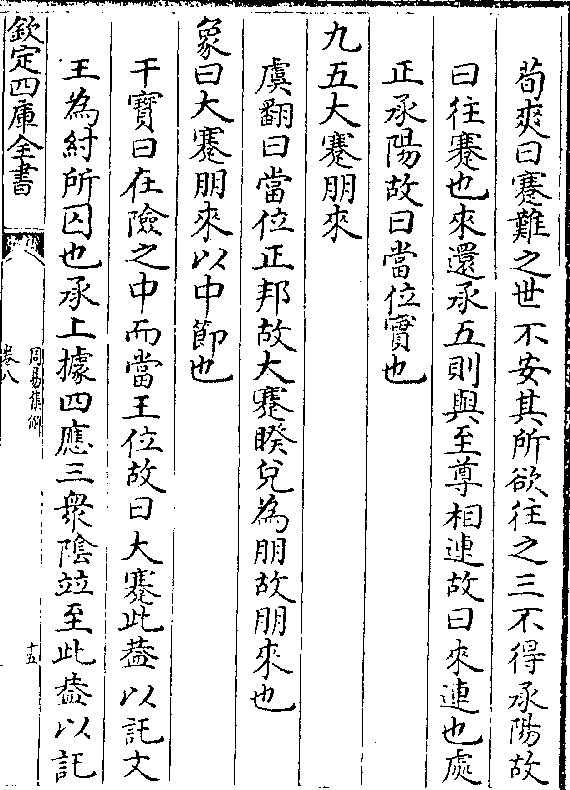 荀爽曰蹇難之世不安其所欲往之三不得承陽故
曰往蹇也來還承五則與至尊相連故曰來連也處
正承陽故曰當位實也
九五大蹇朋來
虞翻曰當位正邦故大蹇睽兌為朋故朋來也
象曰大蹇朋來以中節也
干寶曰在險之中而當王位故曰大蹇此葢以託文
王為紂所囚也承上據四應三衆陰竝至此葢以託
欽定四庫全書
周易集解
卷八
十五